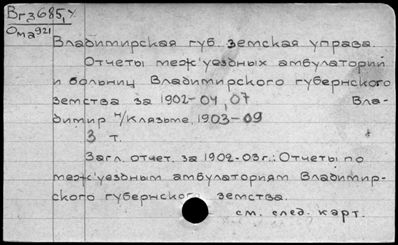 Вгз685,у
Ома921
Владимирская губ. земская управа.
Отчеты меж'уездных амбулаторий
и больниц Владимирского губернского
земства за 1902-04, 07 Вла-
димир н/Клязьме, 1903-09
3 т.
Загл. отчет. за 1902-03г.: Отчеты по
меж'уездным амбулаториям Владимир-
ского губернского земства.
см. след. карт.